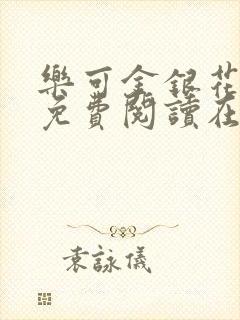 樂可金銀花
免費閱讀在
袁詠儀